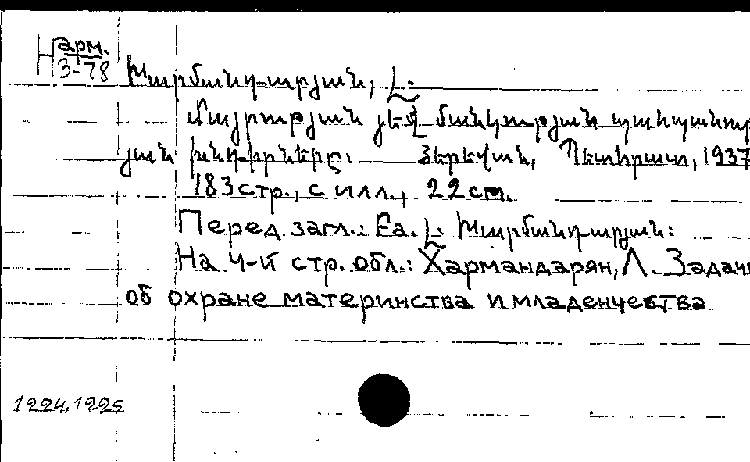 Н арм.
3-78
Խարմանդարյան, Լ.
Մայրության յեվ մանկության պահպանու
յան խնդիրները. Յերեվան, Պետհրատ, 1937
183 стр., с илл., 22 см.
Перед загл.: Ea. Լ. Խարմանդարյան:
На 4-й стр. обл.: Хармандарян, Л. Задачи
об охране материнства и младенчества
1224, 1225